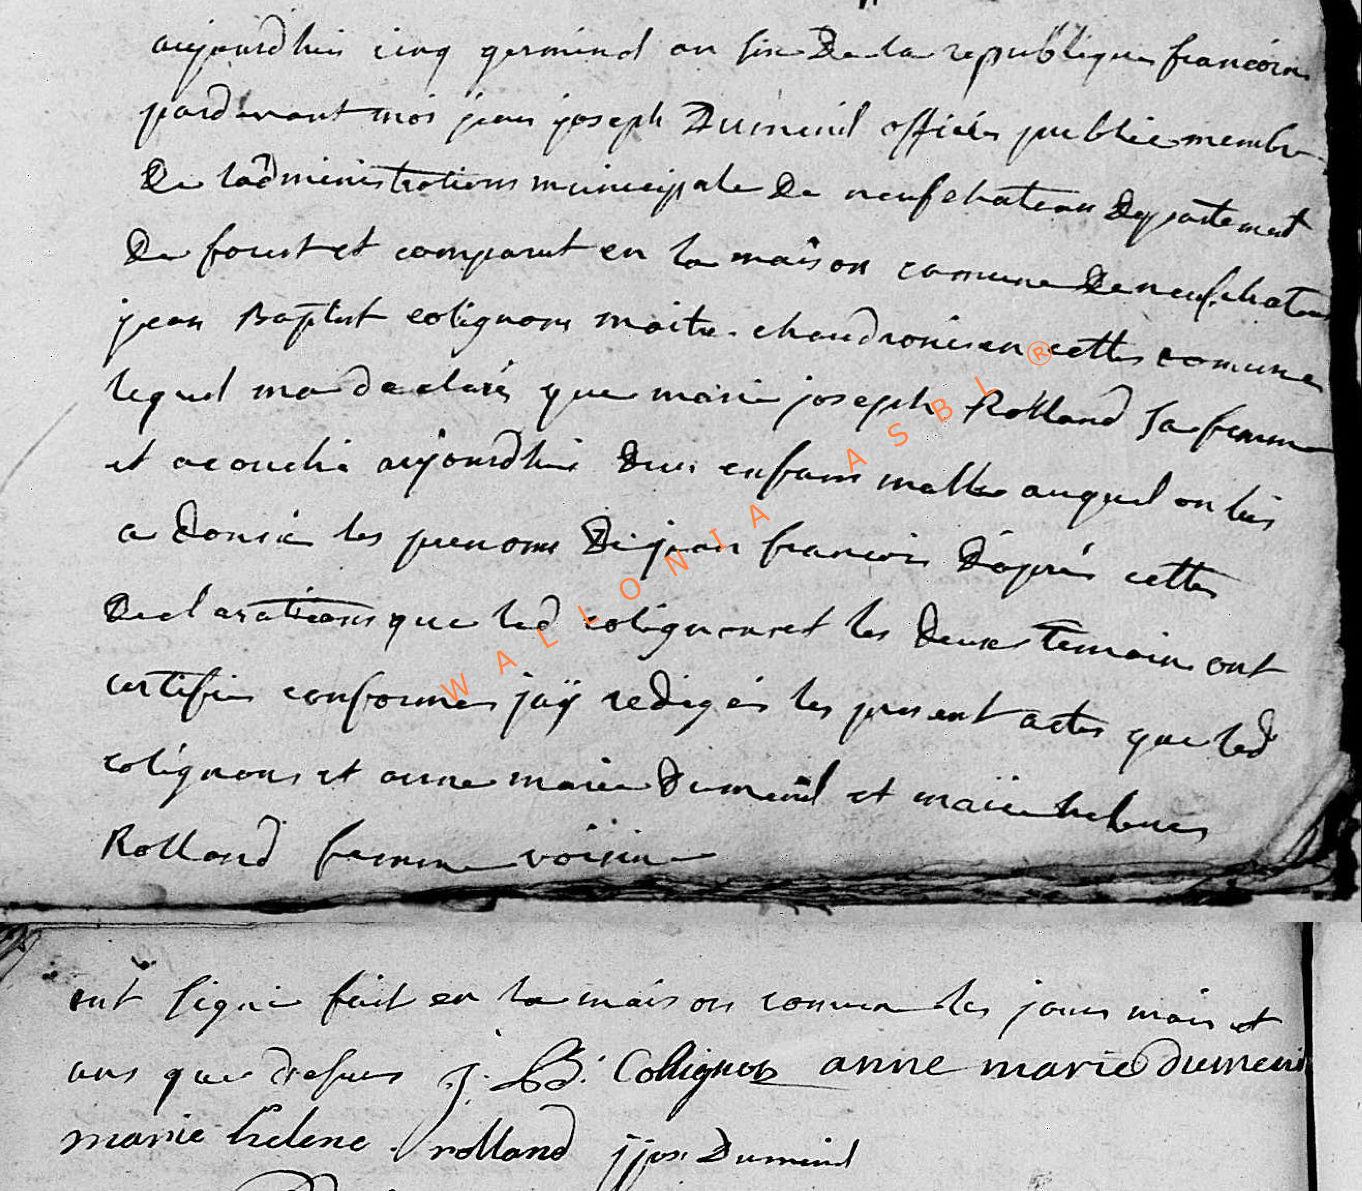 aujourdhui cinq germinal an six De la republique francoise
pardevant moi jean joseph Dumenil officiés publice membre
De ladministrations municipale De neufchateau Departement
De fourt et comparut en la maison comune De neufchateau
jean Baptist colignons maitre chaudronié en cettes comunes
lequel ma declarés que marie joseph Rolland sa femme
et acouchée aujourdhui Dun enfans malle auquel on lui
a Donnée les prenoms De jean francois Daprés cettes
Declarations que led colignons et les Deux temoins ont
certifiés conformes jaÿ redigés les present actes que led
colignons et anne marie Dumenil et marie helenes
Rolland femme voisine
ont signé fait en la maison comune les jours mois et
ans que desus J. B. Collignon anne marie dumenil
marie helene rolland jjos: Dumenil
WALLONIA ASBL ®